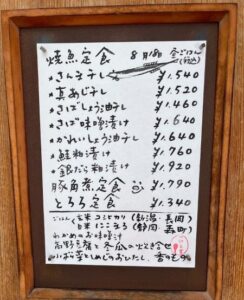 焼魚定食 8月18日 冬ごはん (税込)
*さんま干し ¥1.540
*真あじ干し ¥1.520
*さばしょう油干し ¥1.460
*さば味噌漬け ¥1.640
*かれいしょう油干し ¥1.640
*鮭粕漬け ¥1.760
*銀だら粕漬け ¥1.920
豚角煮定食 ¥1.790
とろろ定食 ¥1.340
ごはん 玄米 コシヒカリ (新潟・長岡)
白米 にこまる (静岡・森町)
わかめのお味噌汁
高野豆腐と冬瓜の炊き合せ
小お菜としめじのおひたし 香の物